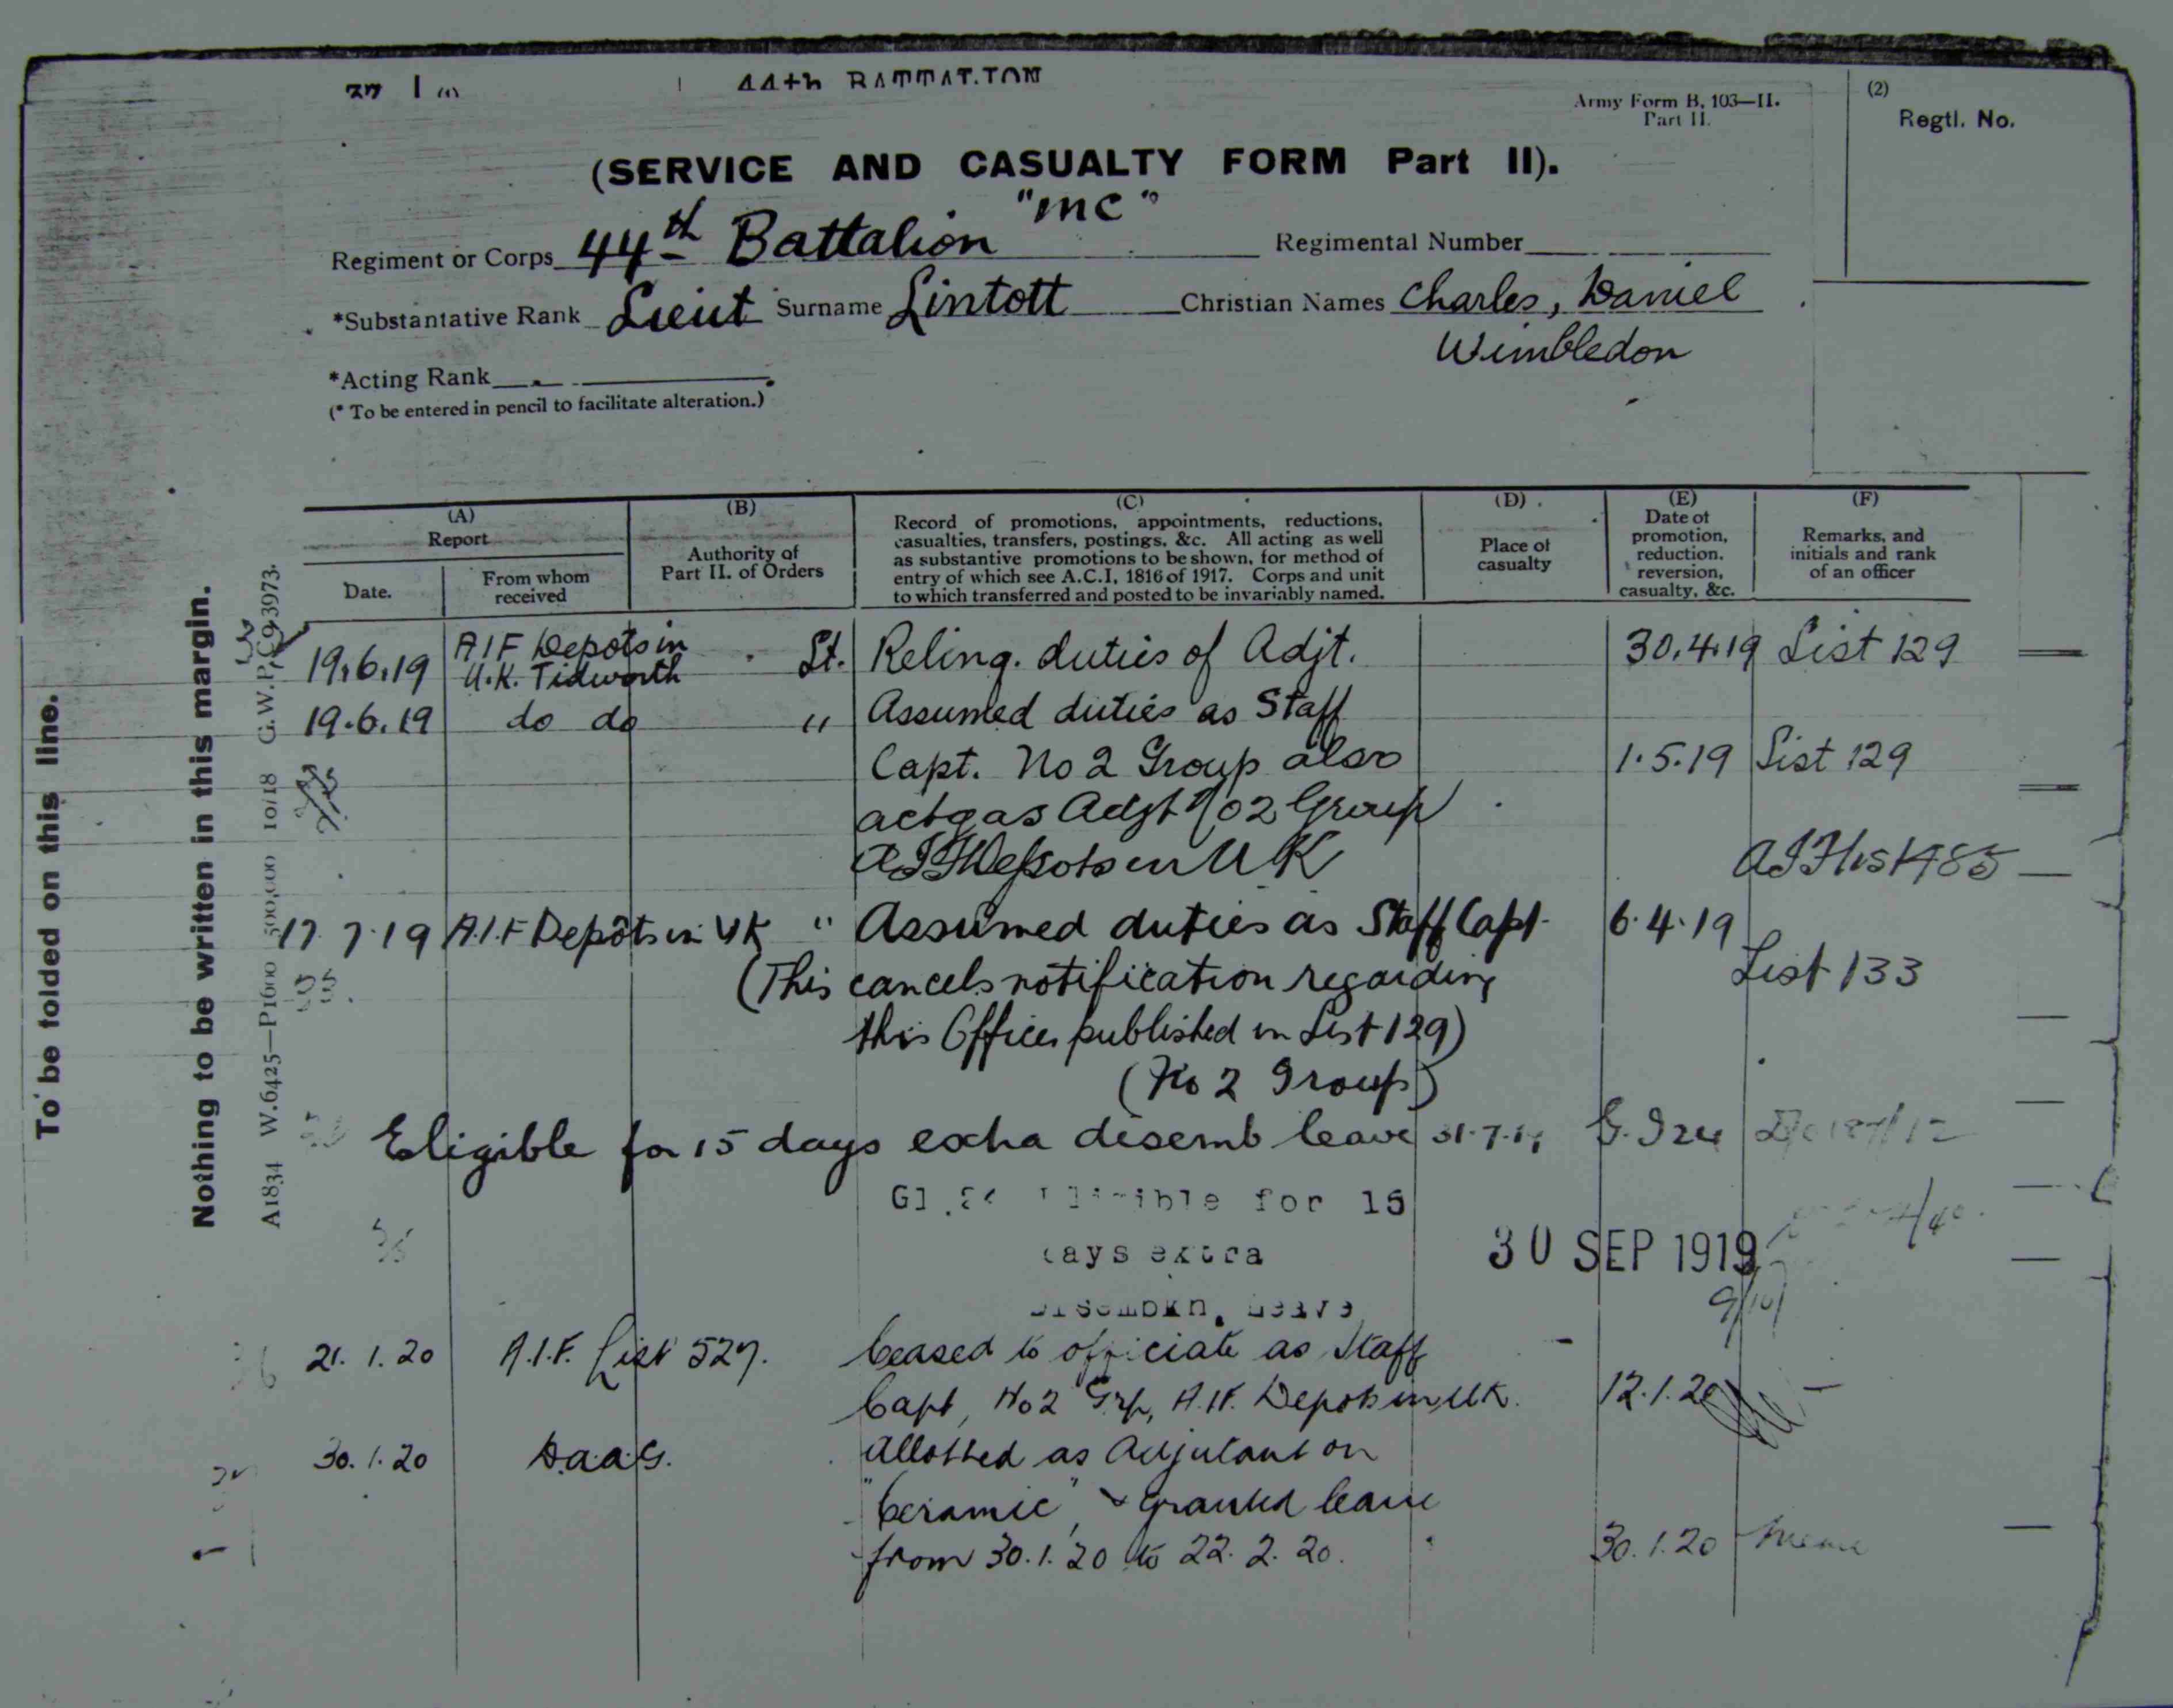 44th BATTALION
Army Form B. 103—II.
Part II.
(2)
Regtl. No.
(SERVICE AND CASUALTY FORM Part II).
"MC"
Regiment or Corps 44th Battalion Regimental Number
*Substantative Rank Lieut Surname Lintott Christian Names Charles, Daniel
Wimbledon
*Acting Rank
(* To be entered in pencil to facilitate alteration.)
To be folded on this line.
Nothing to be written in this margin.
A1834 W.6425—P1600 500,000 10/18 G.W.P.
(A)
Report
Date.
From whom
received
(B)
Authority of
Part II. of Orders
(C)
Record of promotions, appointments, reductions,
casualties, transfers, postings, &c. All acting as well
as substantive promotions to be shown, for method of
entry of which see A.C.I, 1816 of 1917. Corps and unit
to which transferred and posted to be invariably named.
(D)
Place of
casualty
(E)
Date of
promotion,
reduction,
reversion,
casualty, &c.
(F)
Remarks, and
initials and rank
of an officer
19.6.19 AIF Depots in
U.K. Tidworth St. Relinq. duties of Adjt. 30.4.19 List 129
19.6.19 do do " Assumed duties as Staff
Capt. No 2 Group also 1.5.19 List 129
actg as Adjt No 2 Group
AIF Depots in UK
17.7.19 A.I.F Depôts in UK " Assumed duties as Staff Capt. 6.4.19
(This cancels notification regarding List 133
this Officer published in List 129)
(No 2 Group)
Eligible for 15 days extra disemb leave 31.7.19
Eligible for 15
days extra
Disembkn. Leave
30 SEP 1919
21.1.20 A.I.F. List 527. Ceased to officiate as Staff
Capt, No 2 Grp, A.I.F. Depots in UK. 12.1.20
30.1.20 D.A.A.G. Allotted as Adjutant on
"Ceramic", & granted leave
from 30.1.20 to 22.2.20. 30.1.20 Memo